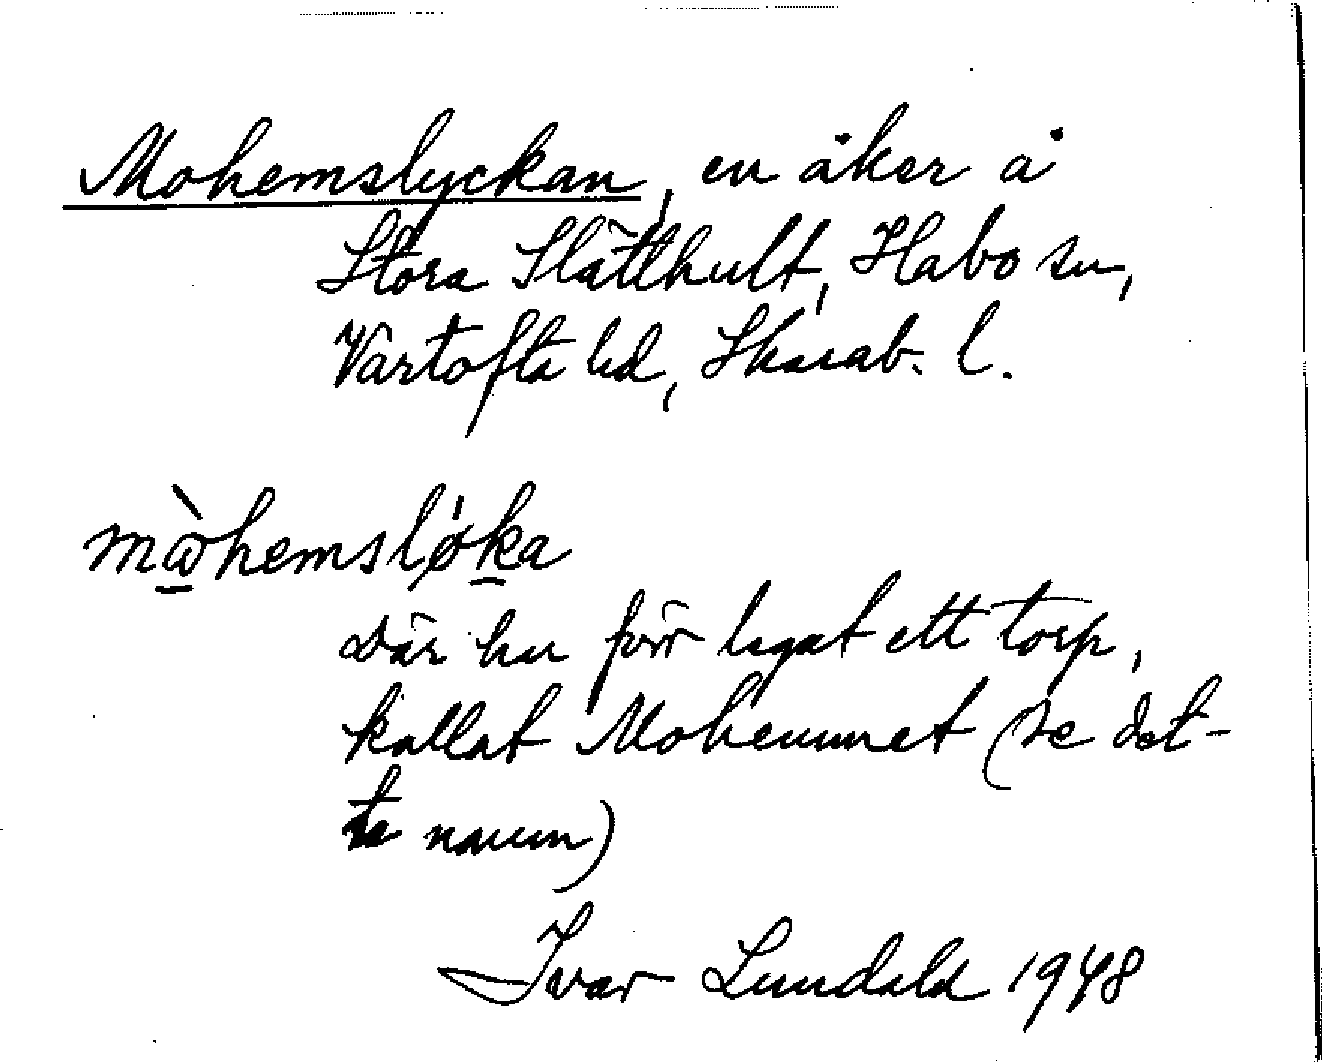 Mohemslyckan, en åker å
Stora Slätthult, Habo sn,
Vartofta hd, Skarab. l.
mòhemsløka
Där har förr legat ett torp,
kallat Mohemmet (se det-
ta namn)
Ivar Lundahl 1948